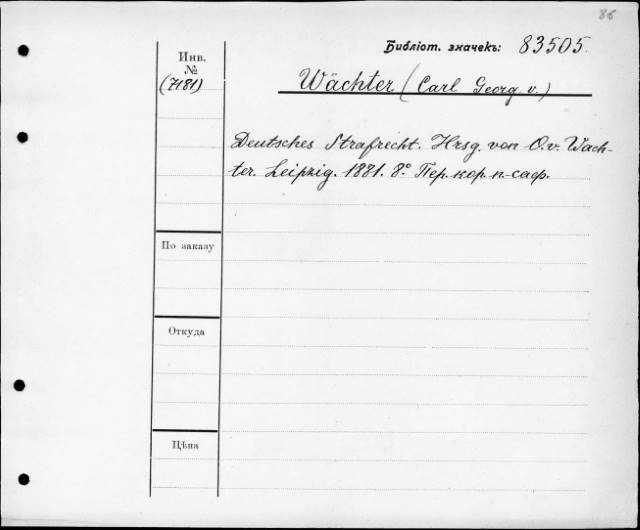 86
Библіот. значекъ: 83505.
Инв.
№
(7181)
Wächter (Carl Georg v.)
Deutsches Strafrecht. Hrsg. von O. v. Wäch-
ter. Leipzig. 1881. 8° Пер. кор. п-саф.
По заказу
Откуда
Цѣна